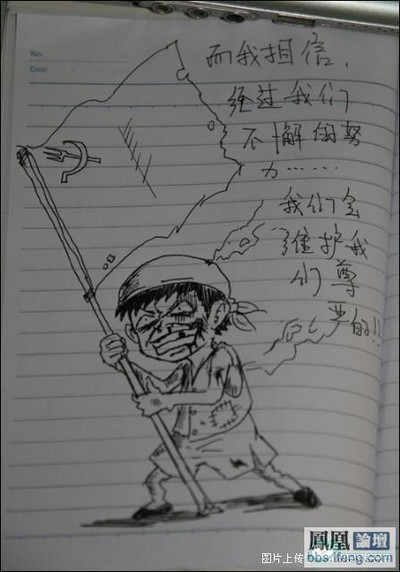 No.
Date
而我担信、
经过我们
不懈的努
力……
我们会
维护我
们尊
严的!!
鳳凰論壇
bbs.ifeng.com
图片上传